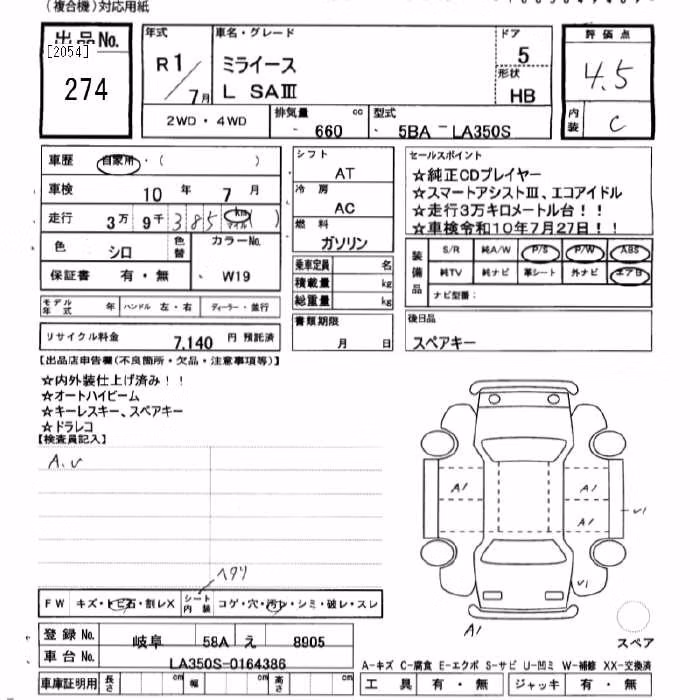 (複合機)対応用紙
出品No.
[2054]
274
年式
R1/7月
車名・グレード
ミライース
L SAⅢ
ドア
5
形状
HB
評価点
4.5
内装
C
2WD・4WD
排気量 cc
660
型式
5BA - LA350S
車歴 自家用・( )
車検 10 年 7 月
走行 3万 9千 385 km マイル ( )
色 シロ
色替
カラーNo.
W19
保証書 有・無
モデル年式 年
ハンドル 左・右
ディーラー・並行
リサイクル料金 7,140 円 預託済
シフト
AT
冷房
AC
燃料
ガソリン
乗車定員 名
積載量 kg
総重量 kg
書類期限
月 日
セールスポイント
☆純正CDプレイヤー
☆スマートアシストⅢ、エコアイドル
☆走行3万キロメートル台!!
☆車検令和10年7月27日!!
装備品
S/R 純A/W P/S P/W ABS
純TV 純ナビ 革シート 外ナビ エアB
ナビ型番:
後日品
スペアキー
【出品店申告欄(不良箇所・欠品・注意事項等)】
☆内外装仕上げ済み!!
☆オートハイビーム
☆キーレスキー、スペアキー
☆ドラレコ
【検査員記入】
A.U
A1 A1
A1
U1
U1
A1
スペア
ヘタリ
FW キズ・トビ石・割レX
シート内装 コゲ・穴・汚レ・シミ・破レ・スレ
登録No. 岐阜 58A え 8905
車台No. LA350S-0164386
車庫証明用 長さ cm 幅 cm 高さ cm
A-キズ C-腐食 E-エクボ S-サビ U-凹ミ W-補修 XX-交換済
工具 有・無 ジャッキ 有・無